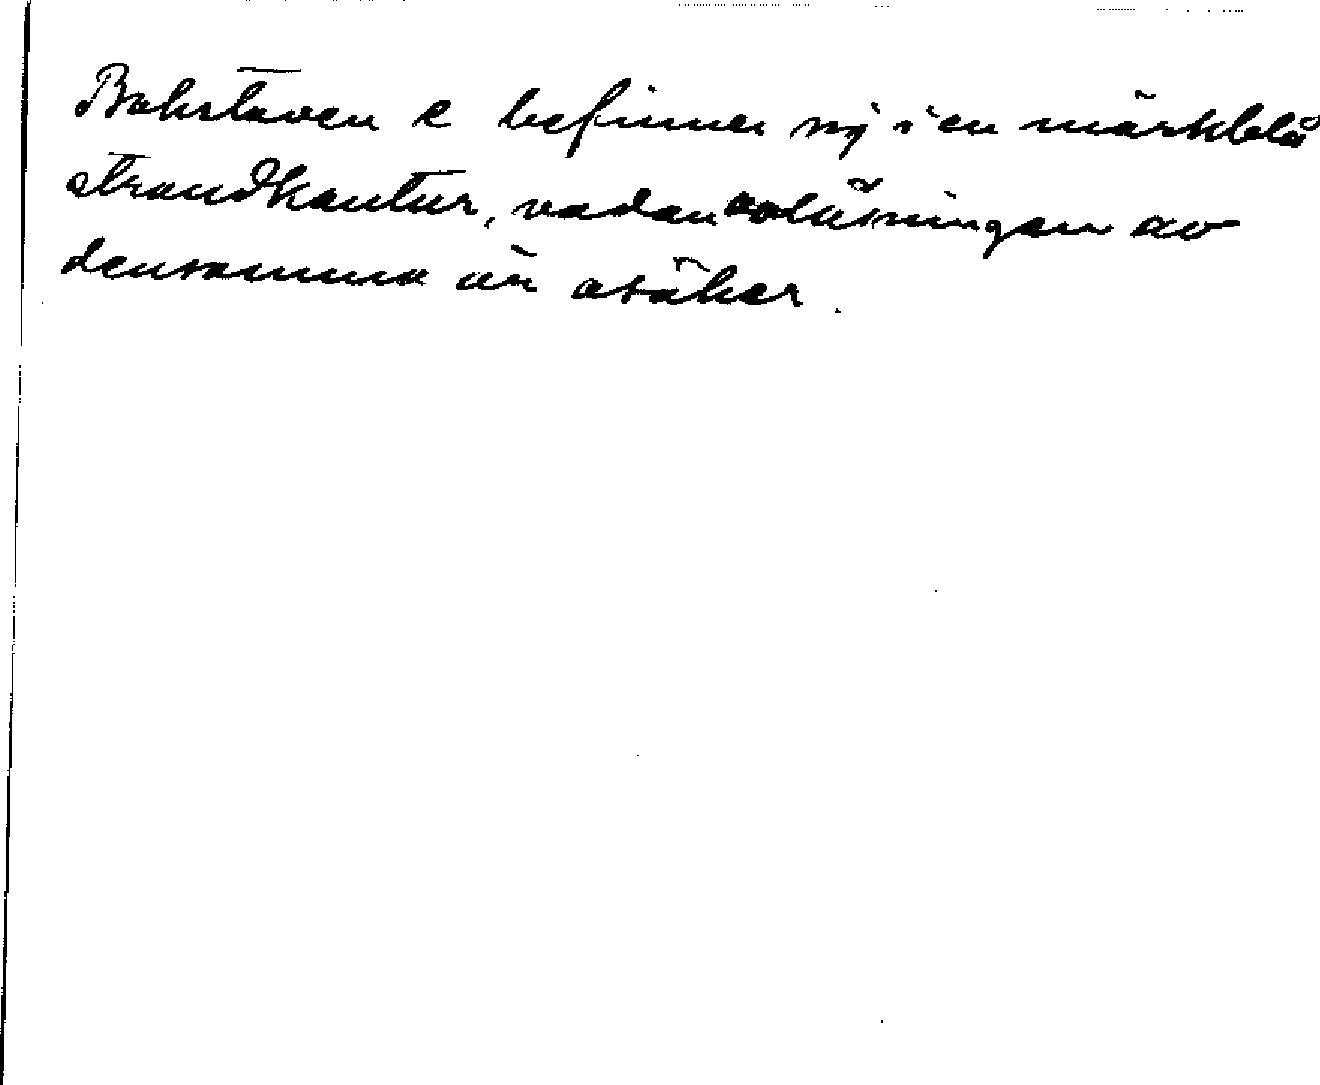 Bokstaven e befinner sig i en mörkblå
strandkontur, vadan avläsningen av
densamma är osäker.